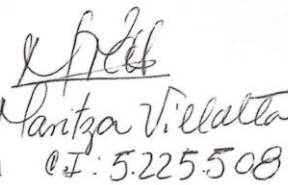 Maritza Villalta
C.I: 5.225.508